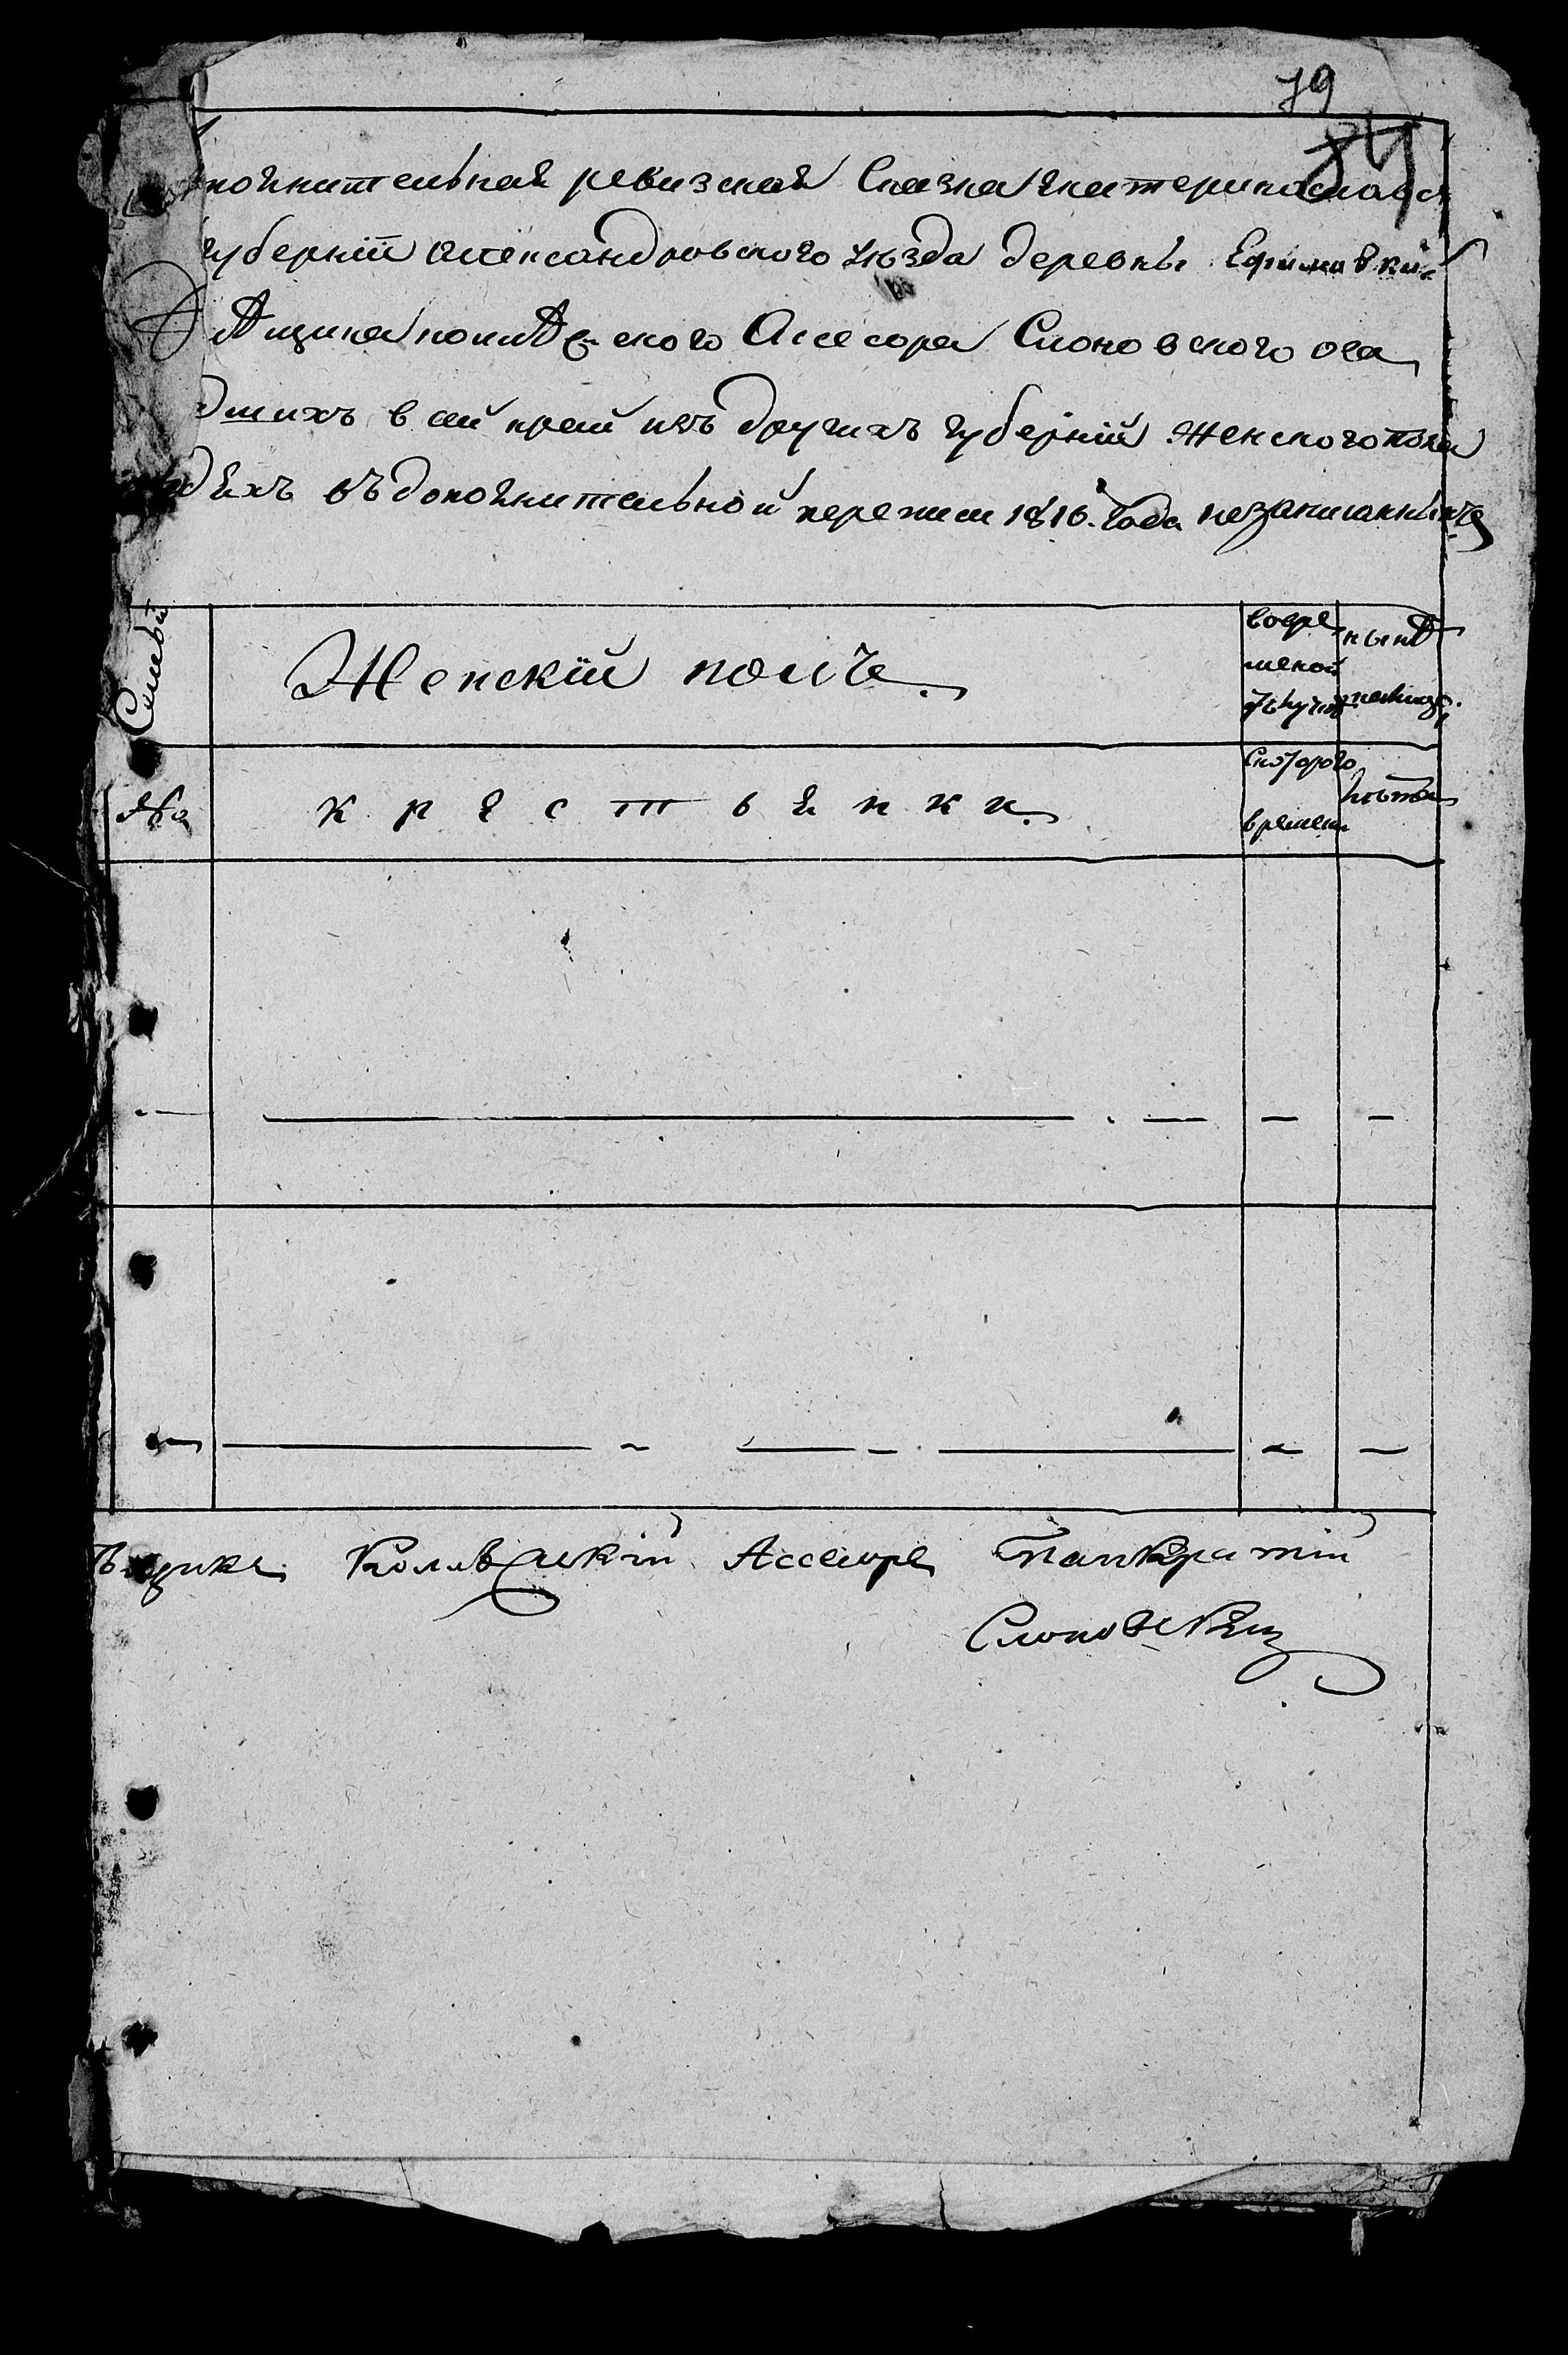 79
84
полнительная ревизская Сказка Екатеринославск
губерніи Александровского уѣзда деревни Ефимовки
ѣщика колеѣзского Асесора Слоновского оса
дшихъ в сей край изъ другихъ губерній женского пола
дѣхъ въ дополнительной переписи 1816. Года незаписанныхъ
Семьи
Женскій полъ
во временной отлучкѣ
нынѣ налицо
№
крестьянки
Скоторого времени
лѣта
ѣщикъ Коллежскій Ассесоръ Панкратій
Слоновскій